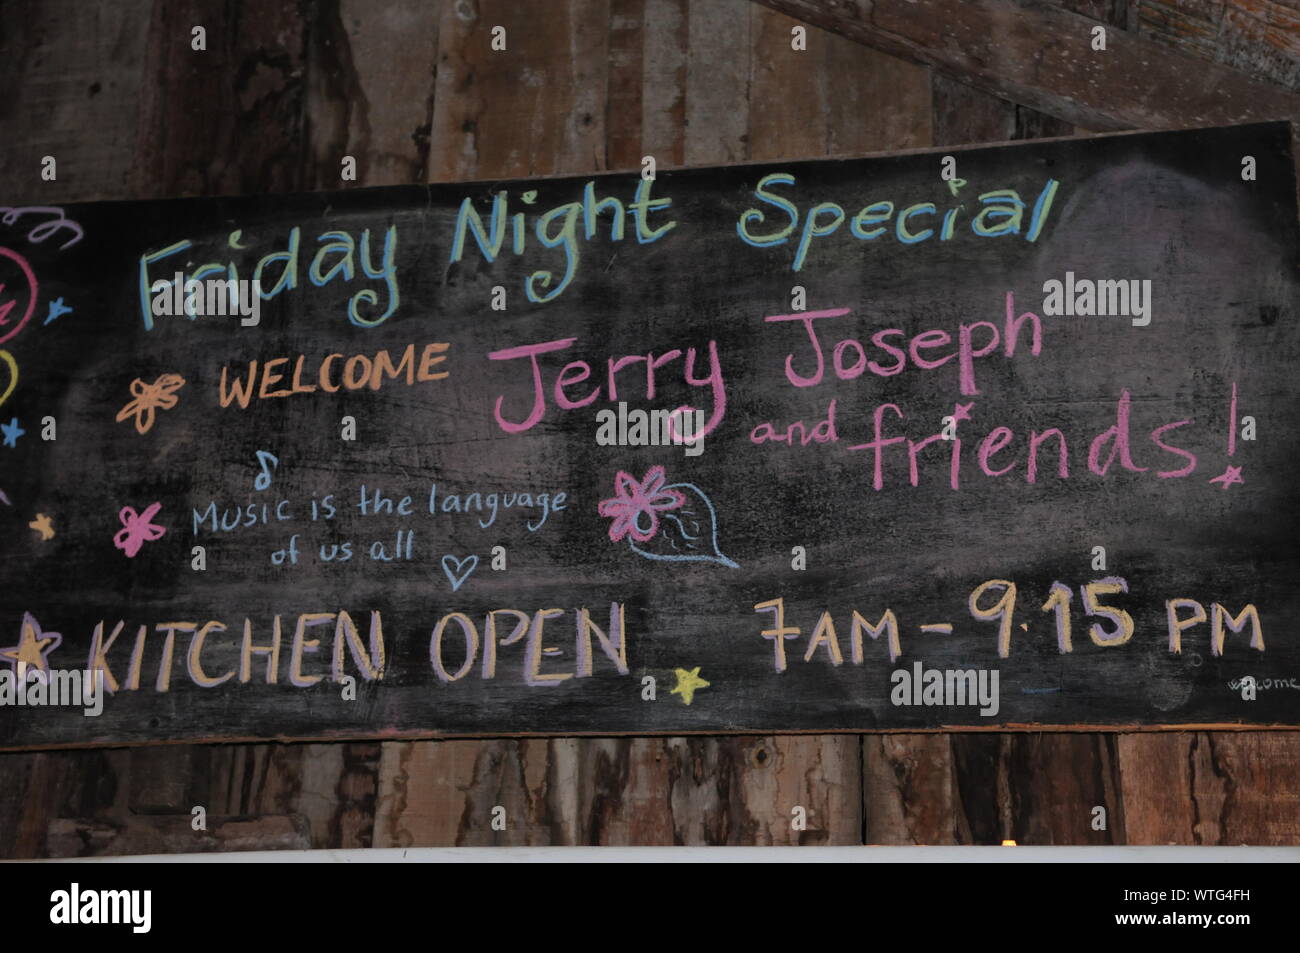 Friday Night Special
WELCOME Jerry Joseph
and friends!
Music is the language
of us all
KITCHEN OPEN 7AM - 9.15 PM
welcome
alamy
a
alamy
Image ID: WTG4FH
www.alamy.com